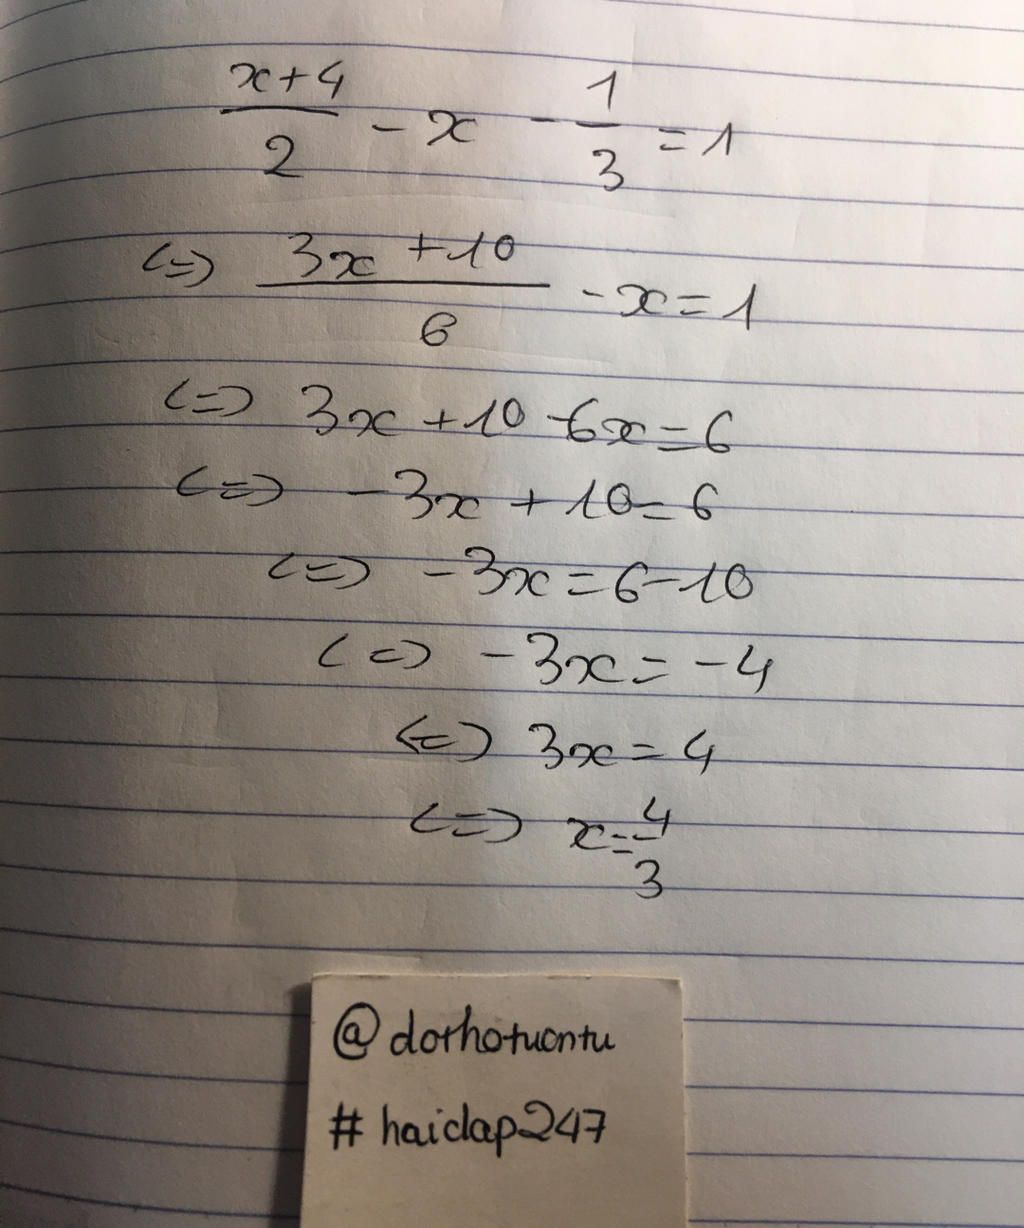 x+4/2 - x - 1/3 = 1
<=> 3x + 10/6 - x = 1
<=> 3x + 10 - 6x = 6
<=> - 3x + 10 = 6
<=> - 3x = 6 - 10
<=> - 3x = - 4
<=> 3x = 4
<=> x = 4/3
@dothotuontu
# hoidap247